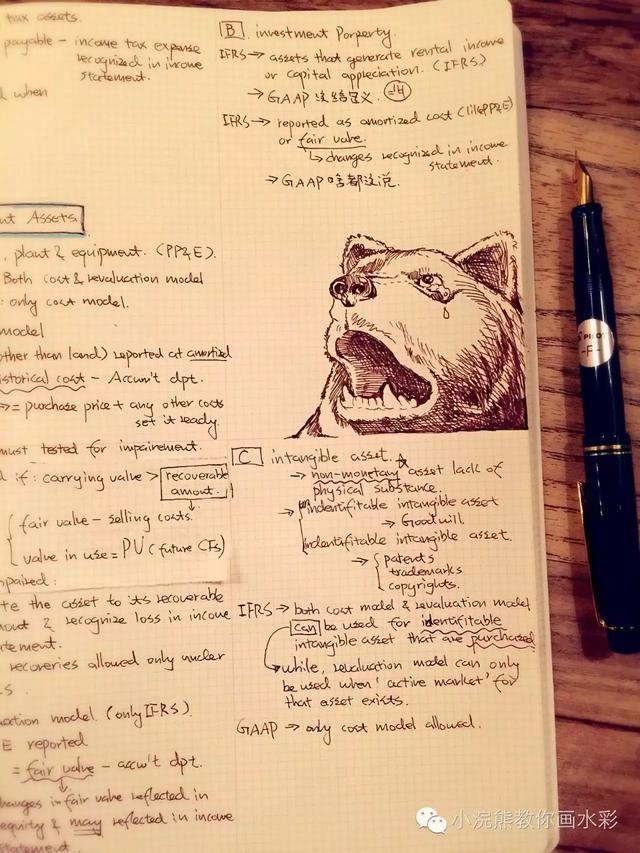 tax assets.
payable - income tax expense
recognized in income
statement.
when
nt Assets
, plant & equipment. (PP&E).
Both cost & revaluation model
: only cost model.
model
other than land) reported at amortized
istorical cost - Accum't dpt.
= purchase price + any other costs
set it ready.
must tested for impairement.
d if : carrying value > recoverable
amout.
fair value - selling costs.
value in use = PV (future CFs)
mpaired :
te the asset to its recoverable
mout & recognize loss in income
tatement.
recoveries allowed only under
uation model. (only IFRS).
E reported
= fair value - accu't dpt.
changes in fair value reflected in
equity & may reflected in income
statement.
B. investment Porperty.
IFRS → assets that generate rental income
or capital appreciation. (IFRS)
→ GAAP 没给定义.
IFRS → reported as amortized cost (like PP&E)
or fair value.
↳ changes recognized in income
statement.
→ GAAP 啥都没说.
C intangible asset.
→ non-monetary asset lack of
physical substance.
→ unindentifitable intangible asset
→ Goodwill.
indentifitable intangible asset.
→ patents
trademarks
copyrights.
IFRS → both cost model & revaluation model
can be used for identifitable
intangible asset that are purchased
while, revaluation model can only
be used when 'active market' for
that asset exists.
GAAP → only cost model allowed.
PILOT
-F-
小浣熊教你画水彩